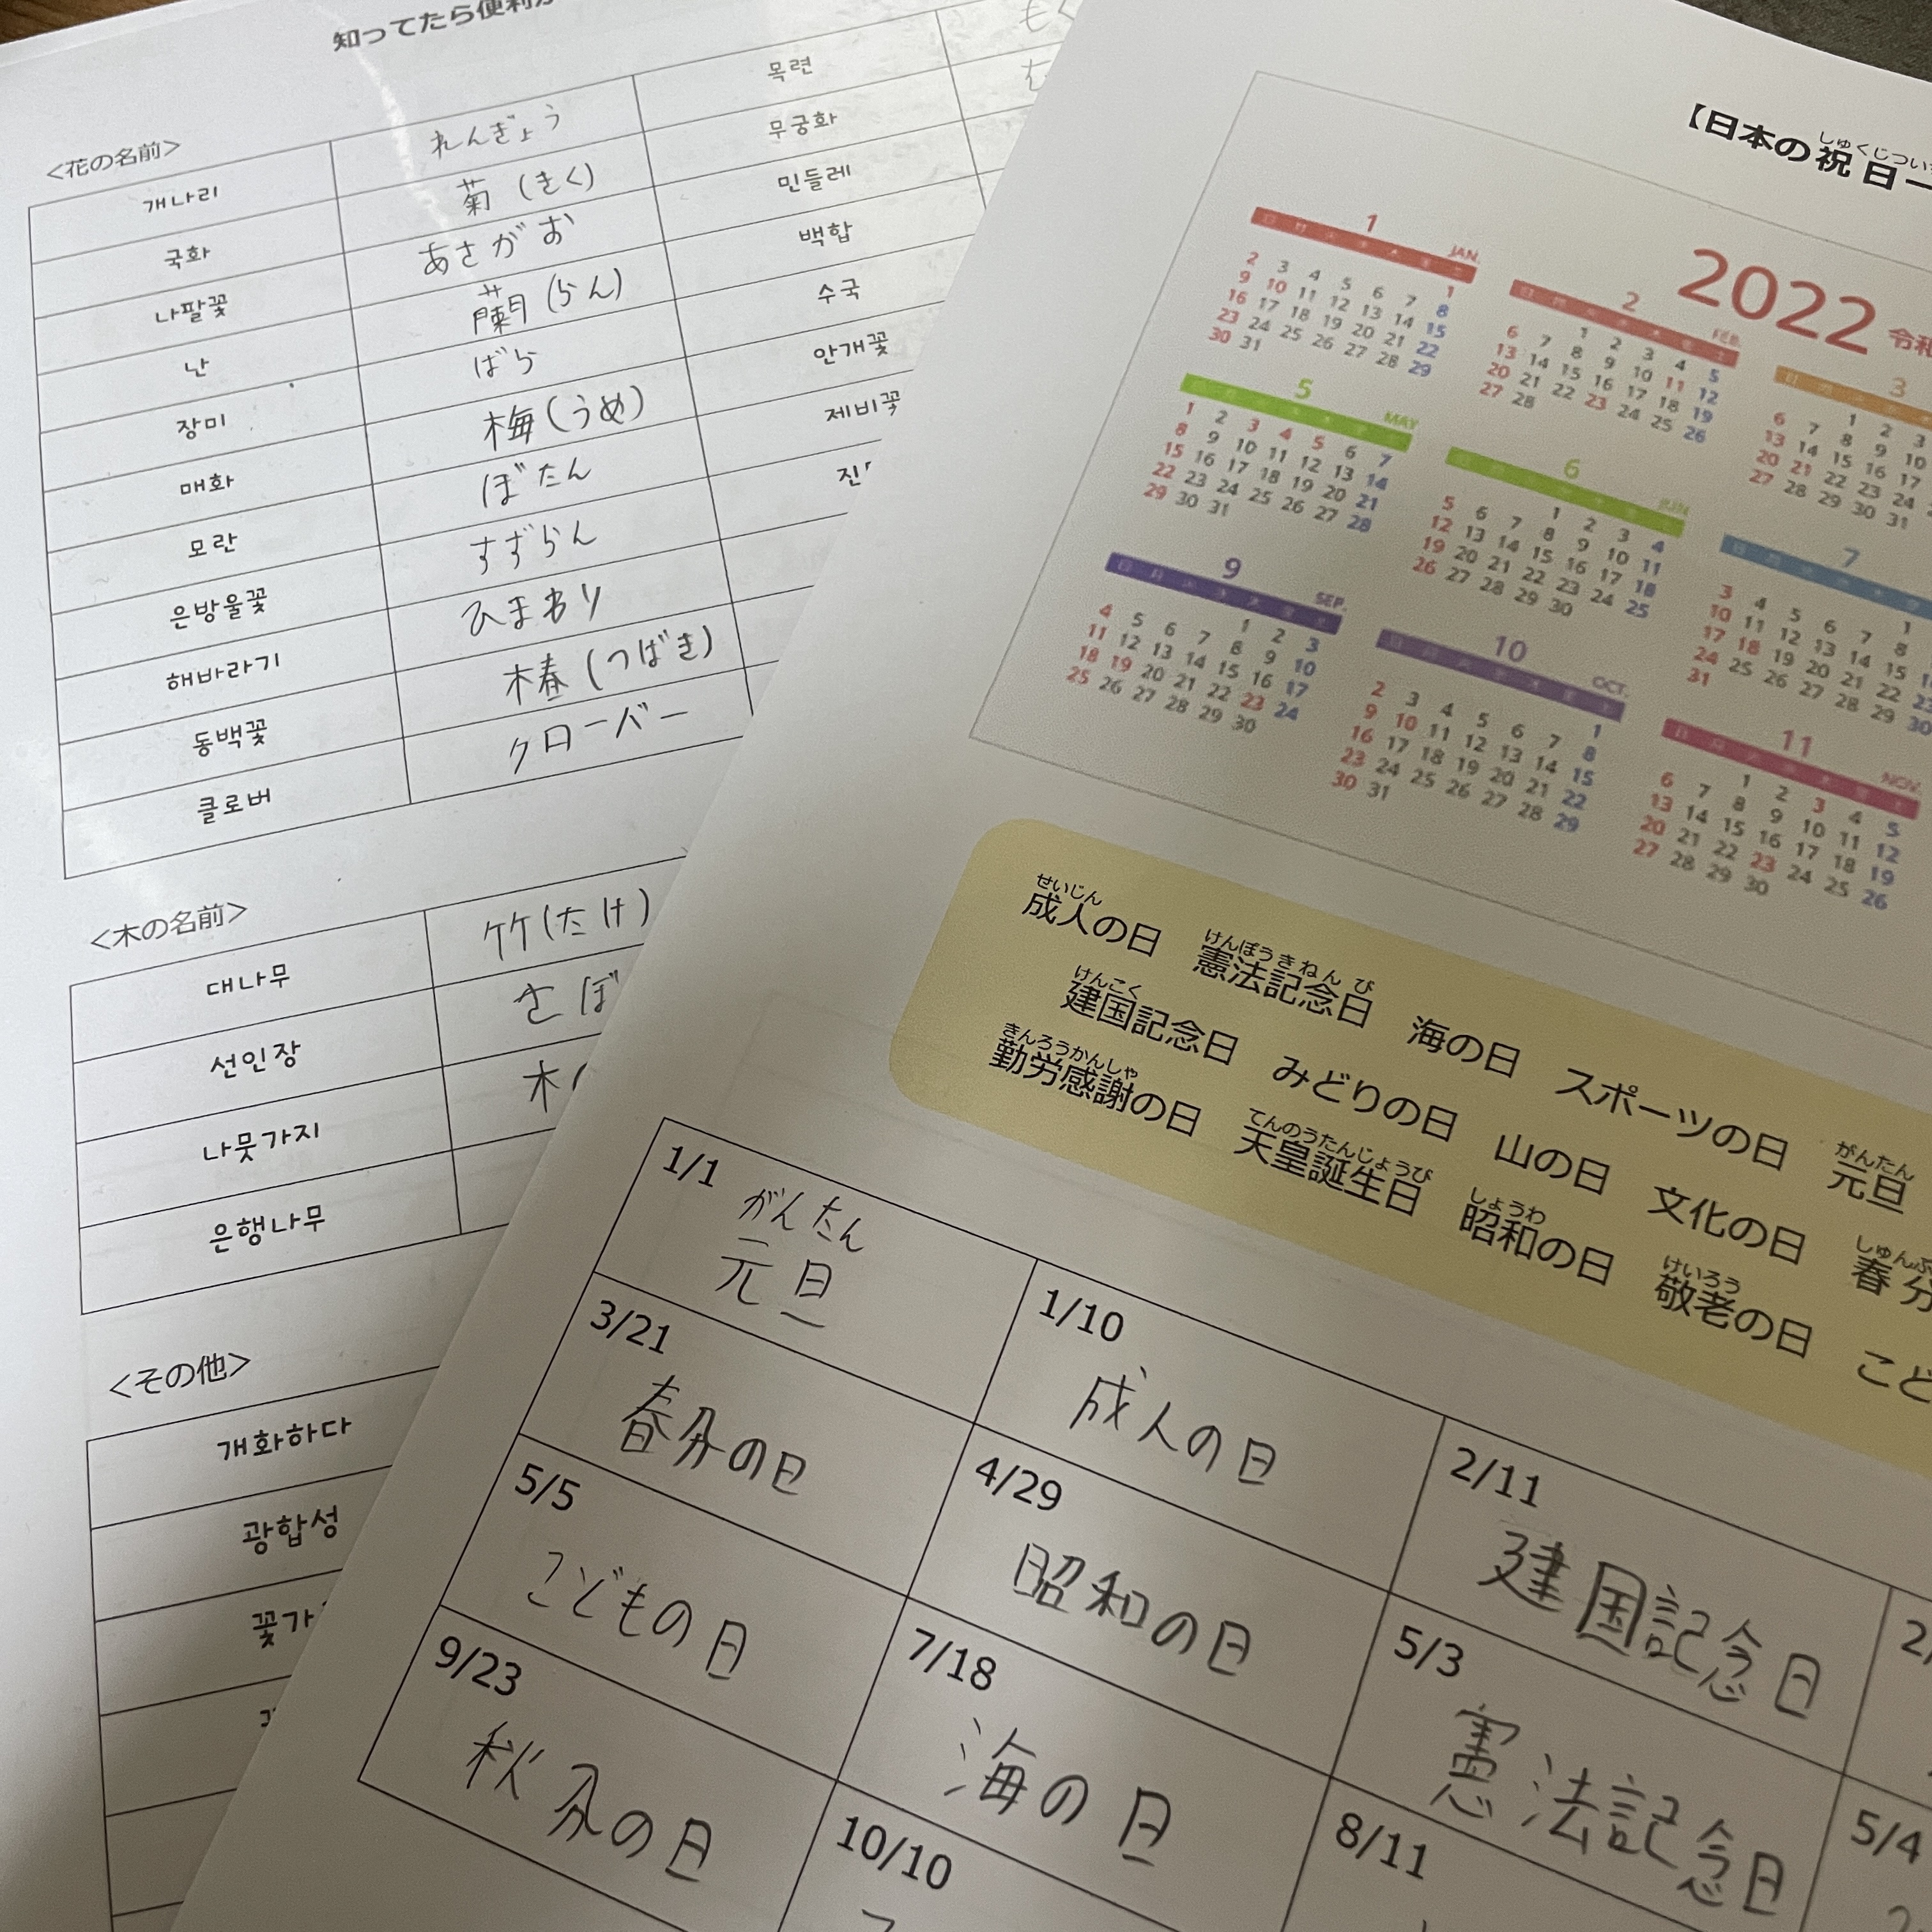 知ってたら便利
<花の名前>
개나리 れんぎょう 목련
국화 菊(きく) 무궁화
나팔꽃 あさがお 민들레
난 蘭(らん) 백합
장미 ばら 수국
매화 梅(うめ) 안개꽃
모란 ぼたん 제비꽃
은방울꽃 すずらん
해바라기 ひまわり
동백꽃 椿(つばき)
클로버 クローバー
<木の名前>
대나무 竹(たけ)
선인장 さぼ
나뭇가지 木
은행나무
<その他>
개화하다
광합성
꽃가
【日本の祝日一
しゅくじつ
2022 令和
1 JAN.
1
2 3 4 5 6 7 8
9 10 11 12 13 14 15
16 17 18 19 20 21 22
23 24 25 26 27 28 29
30 31
2 FEB.
1 2 3 4 5
6 7 8 9 10 11 12
13 14 15 16 17 18 19
20 21 22 23 24 25 26
27 28
3
1 2 3
6 7 8 9 10
13 14 15 16 17
20 21 22 23 24
27 28 29 30 31
5 MAY
1 2 3 4 5 6 7
8 9 10 11 12 13 14
15 16 17 18 19 20 21
22 23 24 25 26 27 28
29 30 31
6 JUN
1 2 3 4
5 6 7 8 9 10 11
12 13 14 15 16 17 18
19 20 21 22 23 24 25
26 27 28 29 30
7
1
3 4 5 6 7 8
10 11 12 13 14 15
17 18 19 20 21 22 23
24 25 26 27 28 29 30
31
9 SEP.
1 2 3
4 5 6 7 8 9 10
11 12 13 14 15 16 17
18 19 20 21 22 23 24
25 26 27 28 29 30
10 OCT.
1
2 3 4 5 6 7 8
9 10 11 12 13 14 15
16 17 18 19 20 21 22
23 24 25 26 27 28 29
30 31
11 NOV.
1 2 3 4 5
6 7 8 9 10 11 12
13 14 15 16 17 18 19
20 21 22 23 24 25 26
27 28 29 30
せいじん けんぽうきねんび
成人の日 憲法記念日 海の日 スポーツの日 元旦
がんたん
けんこく
建国記念日 みどりの日 山の日 文化の日 春分
しゅんぶ
きんろうかんしゃ てんのうたんじょうび しょうわ けいろう
勤労感謝の日 天皇誕生日 昭和の日 敬老の日 こど
1/1 がんたん
元旦
1/10
成人の日
2/11
建国記念日
3/21
春分の日
4/29
昭和の日
5/3
憲法記念日
5/4
5/5
こどもの日
7/18
海の日
8/11
9/23
秋分の日
10/10